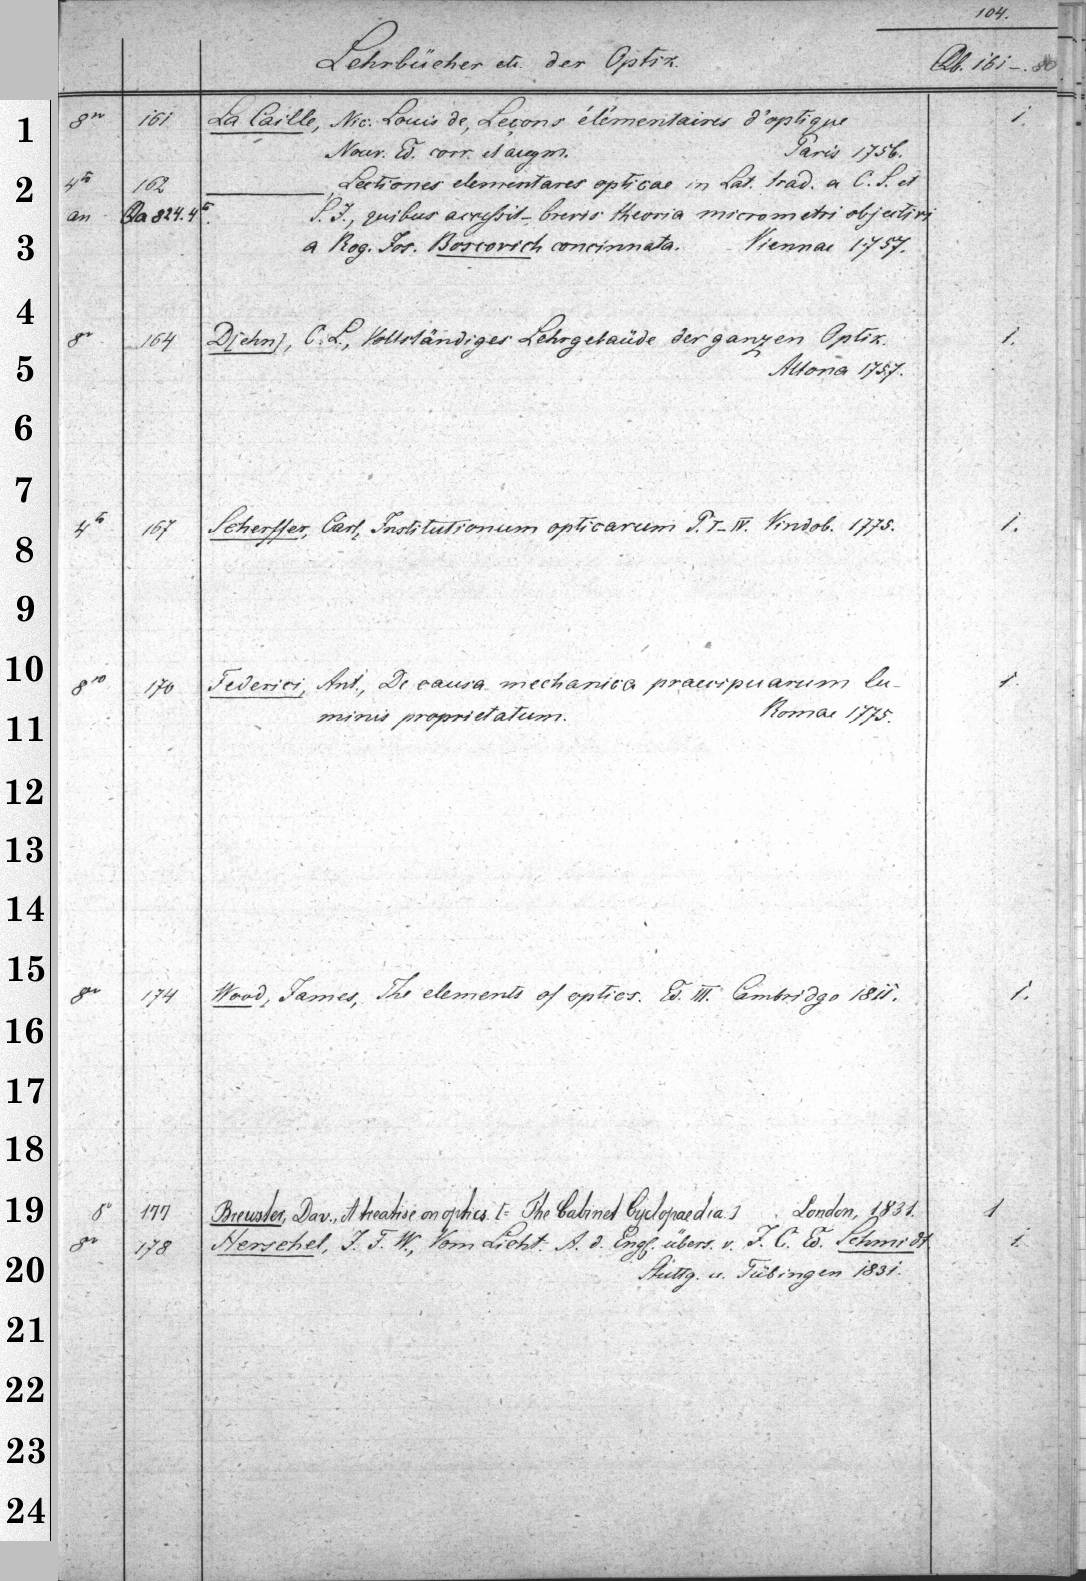 104.
Lehrbücher etc. der Optik. Qb. 161-80
1 8vo 161 La Caille, Nic. Louis de, Leçons élémentaires d'optique 1.
Nouv. Ed. corr. et augm. Paris 1756.
2 4to 162 ——— , Lectiones elementares opticae in Lat. trad. a C. S. et
an Qa 824. 4to. S. J., quibus accessit brevis theoria micrometri objectivi
3 a Rog. Jos. Boscovich concinnata. Viennae 1757.
4
8vo 164 D[ehn], C. L., Vollständiges Lehrgebäude der ganzen Optik. 1.
5 Altona 1757.
6
7
4to 167 Scherffer, Carl, Institutionum opticarum P. I-IV. Vindob. 1775. 1.
8
9
10
8vo 170 Federici, Ant., De causa mechanica praecipuarum lu- 1.
11 minis proprietatum. Romae 1775.
12
13
14
15
8vo 174 Wood, James, The elements of optics. Ed. III. Cambridge 1811. 1.
16
17
18
19 8o 177 Brewster, Dav., A treatise on optics. [= The Cabinet Cyclopaedia.] London, 1831. 1
8vo 178 Herschel, J. F. W., Vom Licht. A. d. Engl. übers. v. J. C. Ed. Schmidt 1.
20 Stuttg. u. Tübingen 1831.
21
22
23
24